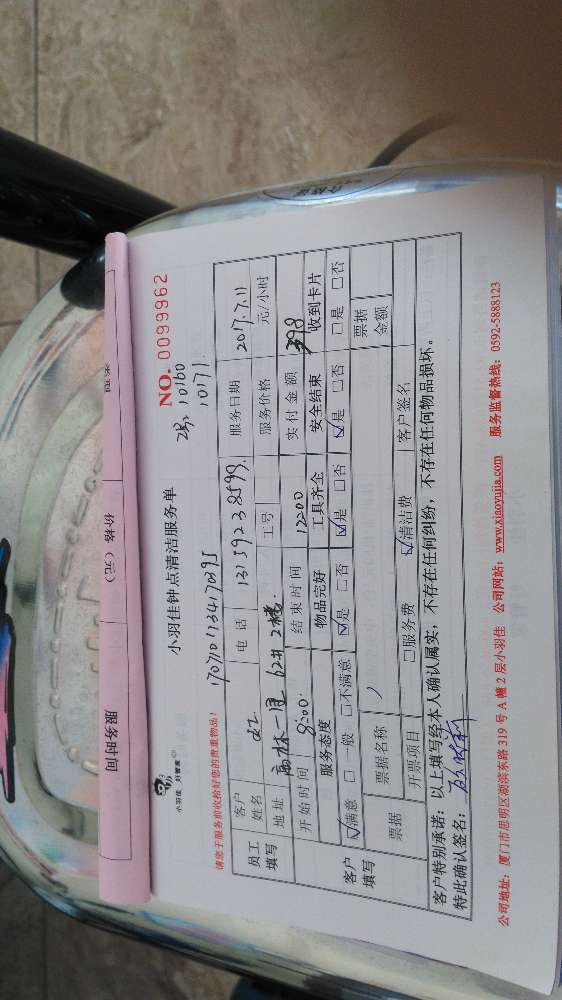 服务时间 价格（元）
小羽佳 好管家
小羽佳钟点清洁服务单
NO. 0099962
10160
10171
请您于服务前收拾好您的贵重物品！
员工填写 客户姓名 电话 13159238599 服务日期 2017.7.11
地址 一里 62# 2楼 工号 服务价格 元/小时
开始时间 8:00 结束时间 12:00 实付金额 398
客户填写 服务态度 物品完好 工具齐全 安全结束 收到卡片
☑满意 □一般 □不满意 ☑是 □否 ☑是 □否 ☑是 □否 □是 □否
票据 票据名称 票据金额
开票项目 □服务费 ☑清洁费 客户签名
客户特别承诺：以上填写经本人确认属实，不存在任何纠纷，不存在任何物品损坏。
特此确认签名：
公司地址：厦门市思明区湖滨东路 319 号 A 幢 2 层小羽佳 公司网站：www.xiaoyujia.com 服务监督热线：0592-5888123